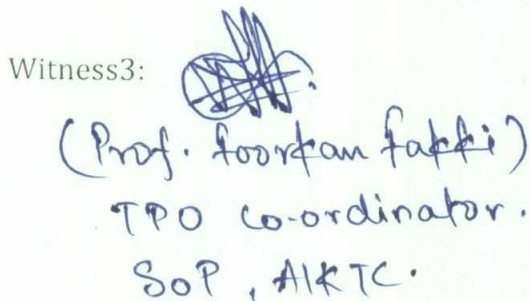 Witness3:
(Prof. Foorkan Fakki)
TPO Co-ordinator.
SoP, AIKTC.